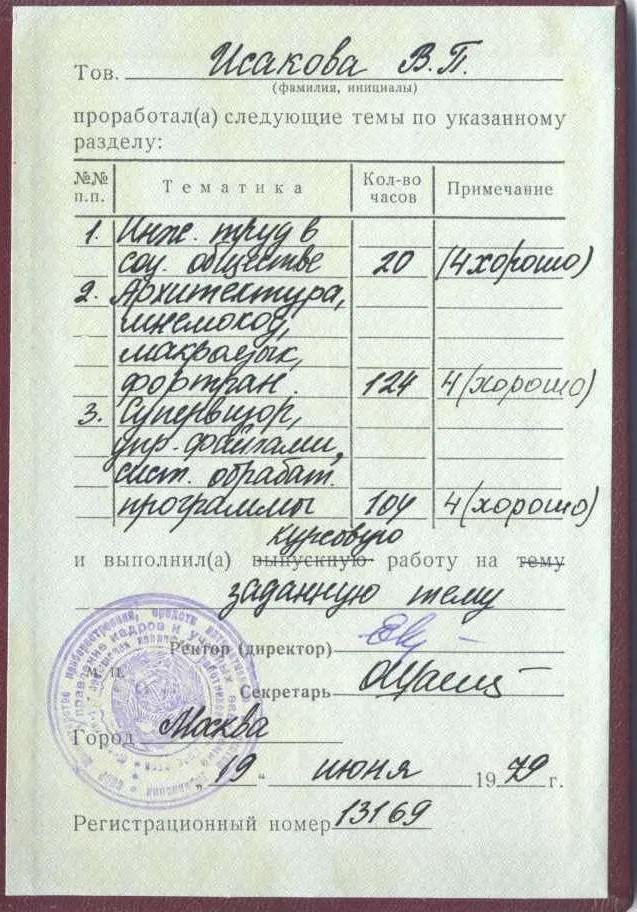 Тов. Исакова В.П.
(фамилия, инициалы)
проработал(а) следующие темы по указанному
разделу:
№№ п.п. Тематика Кол-во часов Примечание
1. Инж. труд в
соц. обществе 20 (4 хорошо)
2. Архитектура,
мнемокод,
макроязык,
фортран. 124 4 (хорошо)
3. Супервизор,
упр. файлами,
сист. обрабат.
программы 104 4 (хорошо)
курсовую
и выполнил(а) выпускную работу на тему
заданную тему
Ректор (директор)
М. П.
Секретарь
Город Москва
„19“ июня 1979 г.
Регистрационный номер 13169